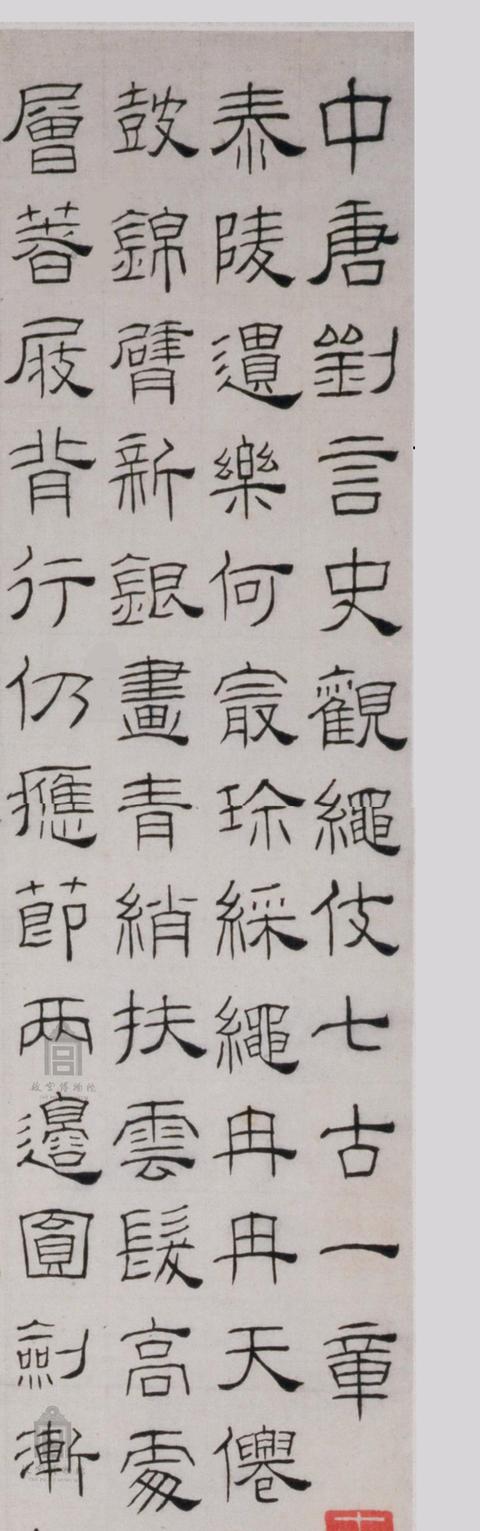 中唐劉言史觀繩伎七古一章
泰陵遺樂何最珍綵繩冉冉天僊
鼓錦臂新銀畫青綃扶雲髮高處
層著屐背行仍應節兩邊圓劍漸
故宫博物院